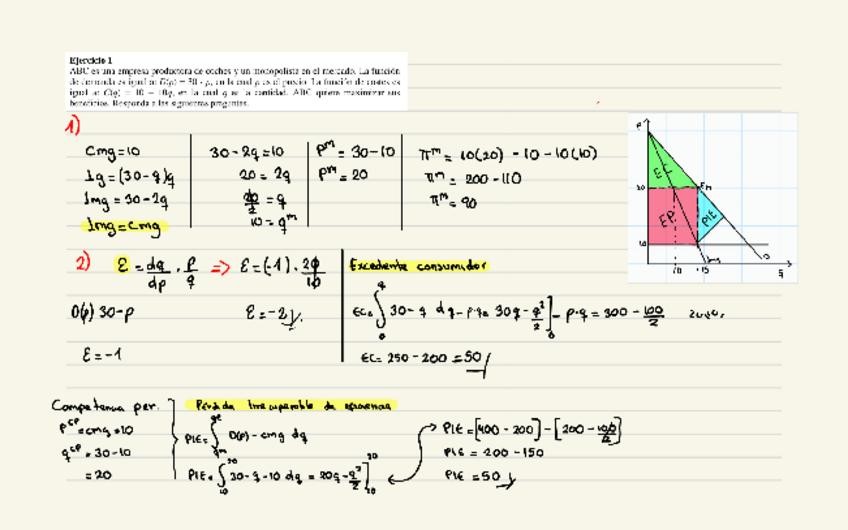 Ejercicio 1
ABC es una empresa productora de coches y un monopolista en el mercado. La función
de demanda es igual a: D(p) = 30 - p, en la cual p es el precio. La función de costes es
igual a: C(q) = 10 + 10q, en la cual q es la cantidad. ABC quiere maximizar sus
beneficios. Responda a las siguientes preguntas.
1)
Cmg = 10
Ig = (30-q)q
Img = 30-2q
Img = Cmg
30-2q = 10
20 = 2q
20/2 = q
10 = q^m
P^m = 30-10
P^m = 20
π^m = 10(20) - 10 - 10(10)
π^m = 200 - 110
π^m = 90
P
EC
20
Em
EP
PIE
10
10
15
D
q
2)
ε = dq/dp · p/q ⇒ ε = (-1) · 20/10
D(p) 30-p
ε = -2
ε = -1
Excedente consumidor
EC = ∫ 30 - q dq - p·q = 30q - q²/2 ] - p·q = 300 - 100/2
EC = 250 - 200 = 50
Competencia per.
P^cp = cmg = 10
q^cp = 30-10
= 20
Pérdida irrecuperable de eficiencia
PIE = ∫ D(p) - cmg dq
PIE = ∫ 30-q-10 dq = 20q - q²/2 ]
PIE = [400 - 200] - [200 - 100/2]
PIE = 200 - 150
PIE = 50